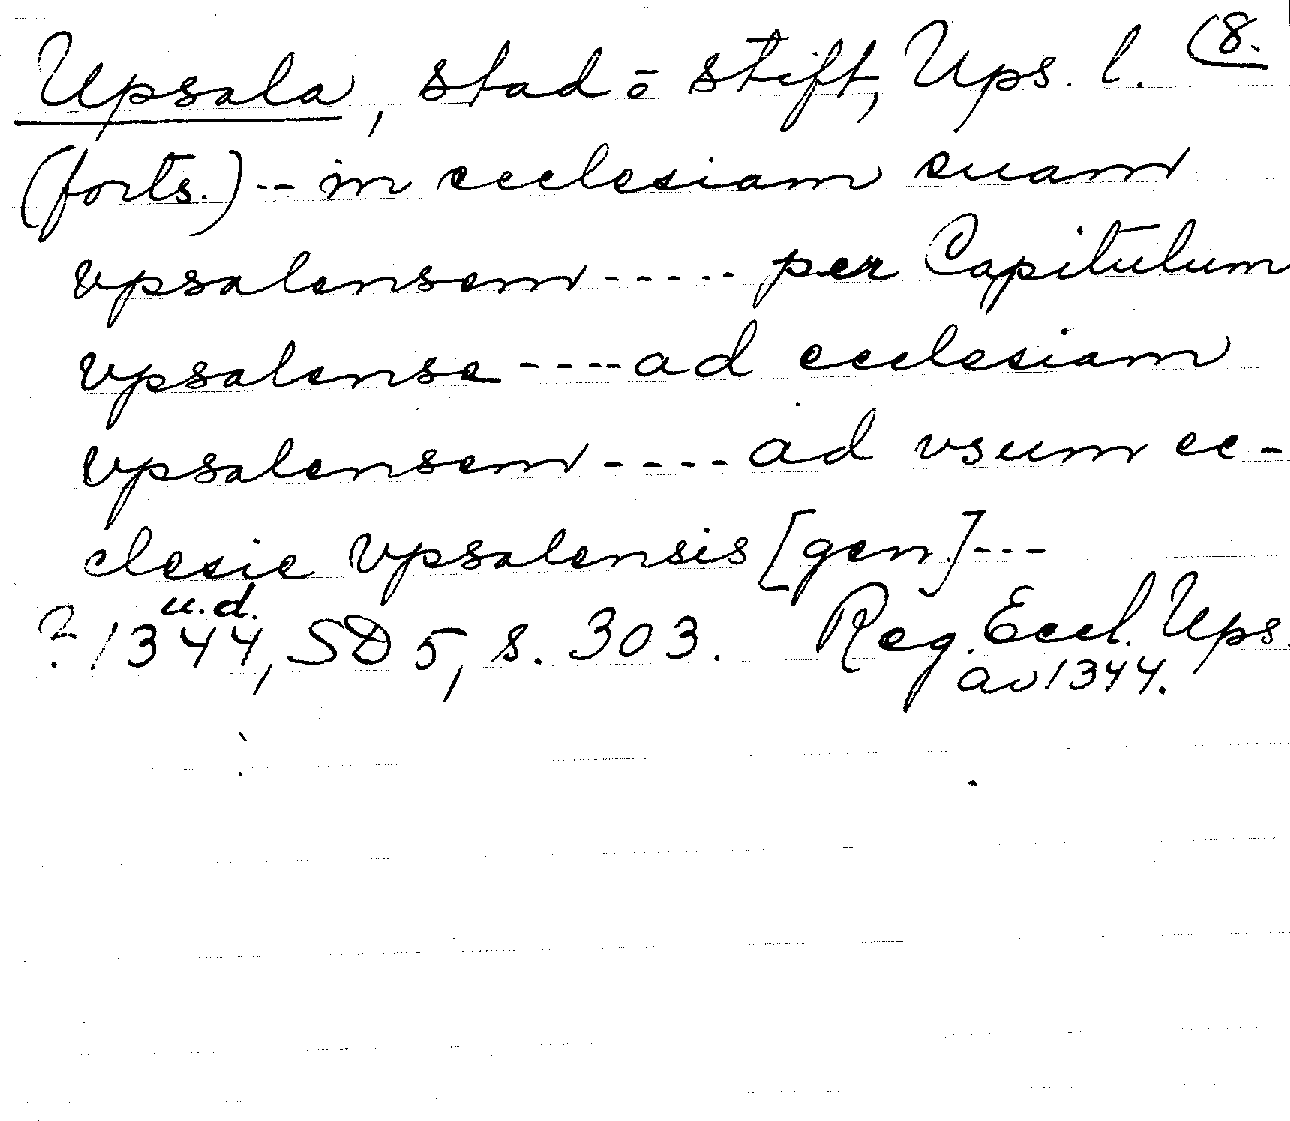 Upsala, stad o stift, Ups. l. (8.
(forts.) -- in ecclesiam suam
vpsalensem ----- per Capitulum
vpsalense ---- ad ecclesiam
vpsalensem ---- ad vsum ec-
clesie Vpsalensis [gen.] ---
u.d.
? 1344, SD 5, s. 303. Reg. Eccl. Ups.
av 1344.